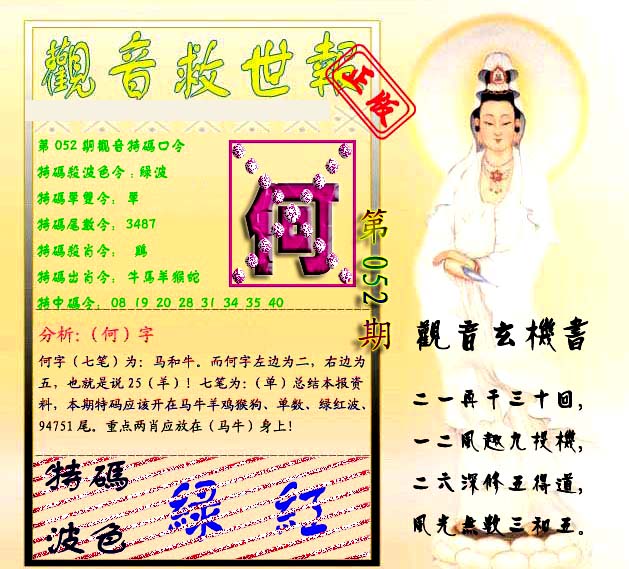 觀音救世報
正版
第052期觀音特碼口令
特碼殺波色令:綠波
特碼單雙令: 單
特碼尾數令: 3487
特碼殺肖令: 鷄
特碼出肖令: 牛馬羊猴蛇
特中碼令: 08 19 20 28 31 34 35 40
何
第052期
分析:（何）字
何字（七笔）为：马和牛。而何字左边为二，右边为
五，也就是说25（羊）！七笔为:（单）总结本报资
料，本期特码应该开在马牛羊鸡猴狗、单数、绿红波、
94751尾。重点两肖应放在（马牛）身上！
特碼
波色
綠 紅
觀音玄機書
二一再干三十回，
一二風趣九投機，
二六深修五得道，
風光無數三和五。